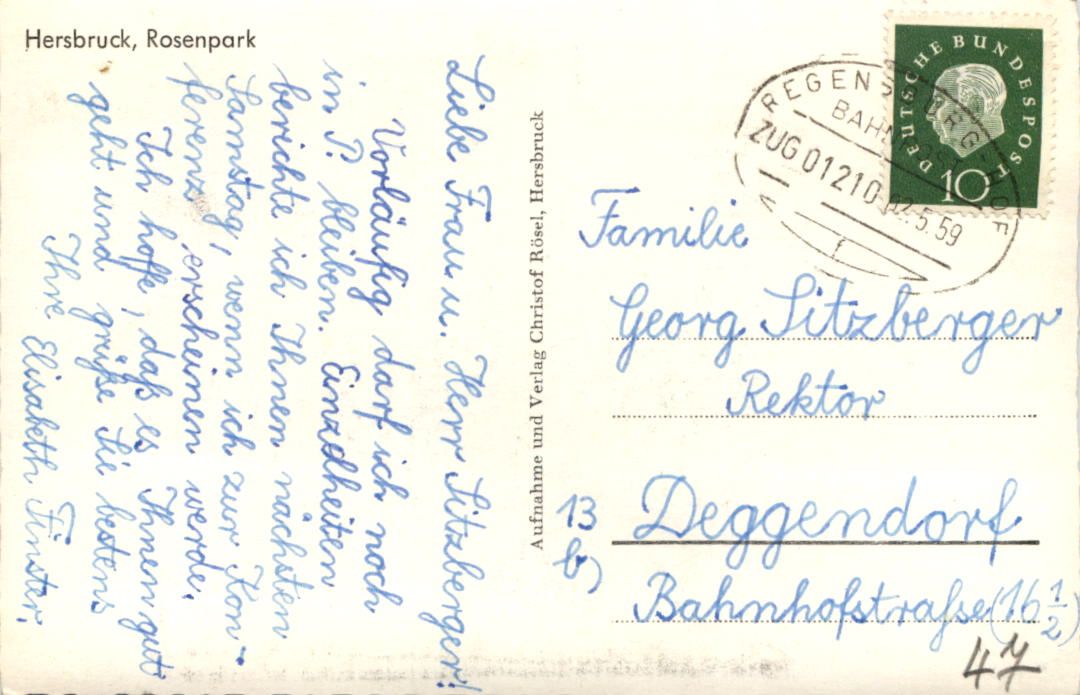 Hersbruck, Rosenpark
Liebe Frau u. Herr Sitzberger!
Vorläufig darf ich noch
in P. bleiben. Einzelheiten
berichte ich Ihnen nächsten
Samstag, wenn ich zur Kon-
ferenz erscheinen werde.
Ich hoffe, daß es Ihnen gut
geht und grüße Sie bestens
Ihre Elisabeth Finster.
Aufnahme und Verlag Christof Rösel, Hersbruck
DEUTSCHE BUNDESPOST
10
REGENSBURG-HOF
BAHNPOST
ZUG 01210
2.5.59
Familie
Georg Sitzberger
Rektor
13
b)
Deggendorf
Bahnhofstraße (16 1/2)
47